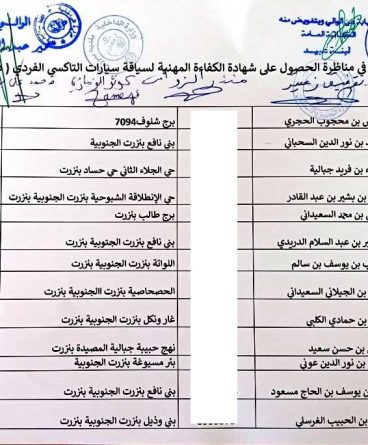 من الوالي وبتفويض منه
العامة
في مناظرة الحصول على شهادة الكفاءة المهنية لسياقة سيارات التاكسي الفردي (
بن محجوب الحجري برج شلوف 7094
بن نور الدين السحباني بني نافع بنزرت الجنوبية
بن فريد جبالية حي الجلاء الثاني حي حساد بنزرت
بن بشير بن عبد القادر حي الإنطلاقة الشبوحية بنزرت الجنوبية بنزرت
بن محمد السعيداني برج طالب بنزرت
بن عبد السلام الدريدي بني نافع بنزرت الجنوبية بنزرت
بن يوسف بن سالم اللواتة بنزرت الجنوبية بنزرت
بن الجيلاني السعيداني الحصحاصية بنزرت الجنوبية بنزرت
بن حمادي الكلبي غار ونكل بنزرت الجنوبية بنزرت
بن حسن سعيد نهج حبيبة جبالية المصيدة بنزرت
بن نور الدين عوني بئر مسيوغة بنزرت الجنوبية
بن يوسف بن الحاج مسعود بني نافع بنزرت الجنوبية بنزرت
بن الحبيب الغرسلي بني وذيل بنزرت الجنوبية بنزرت